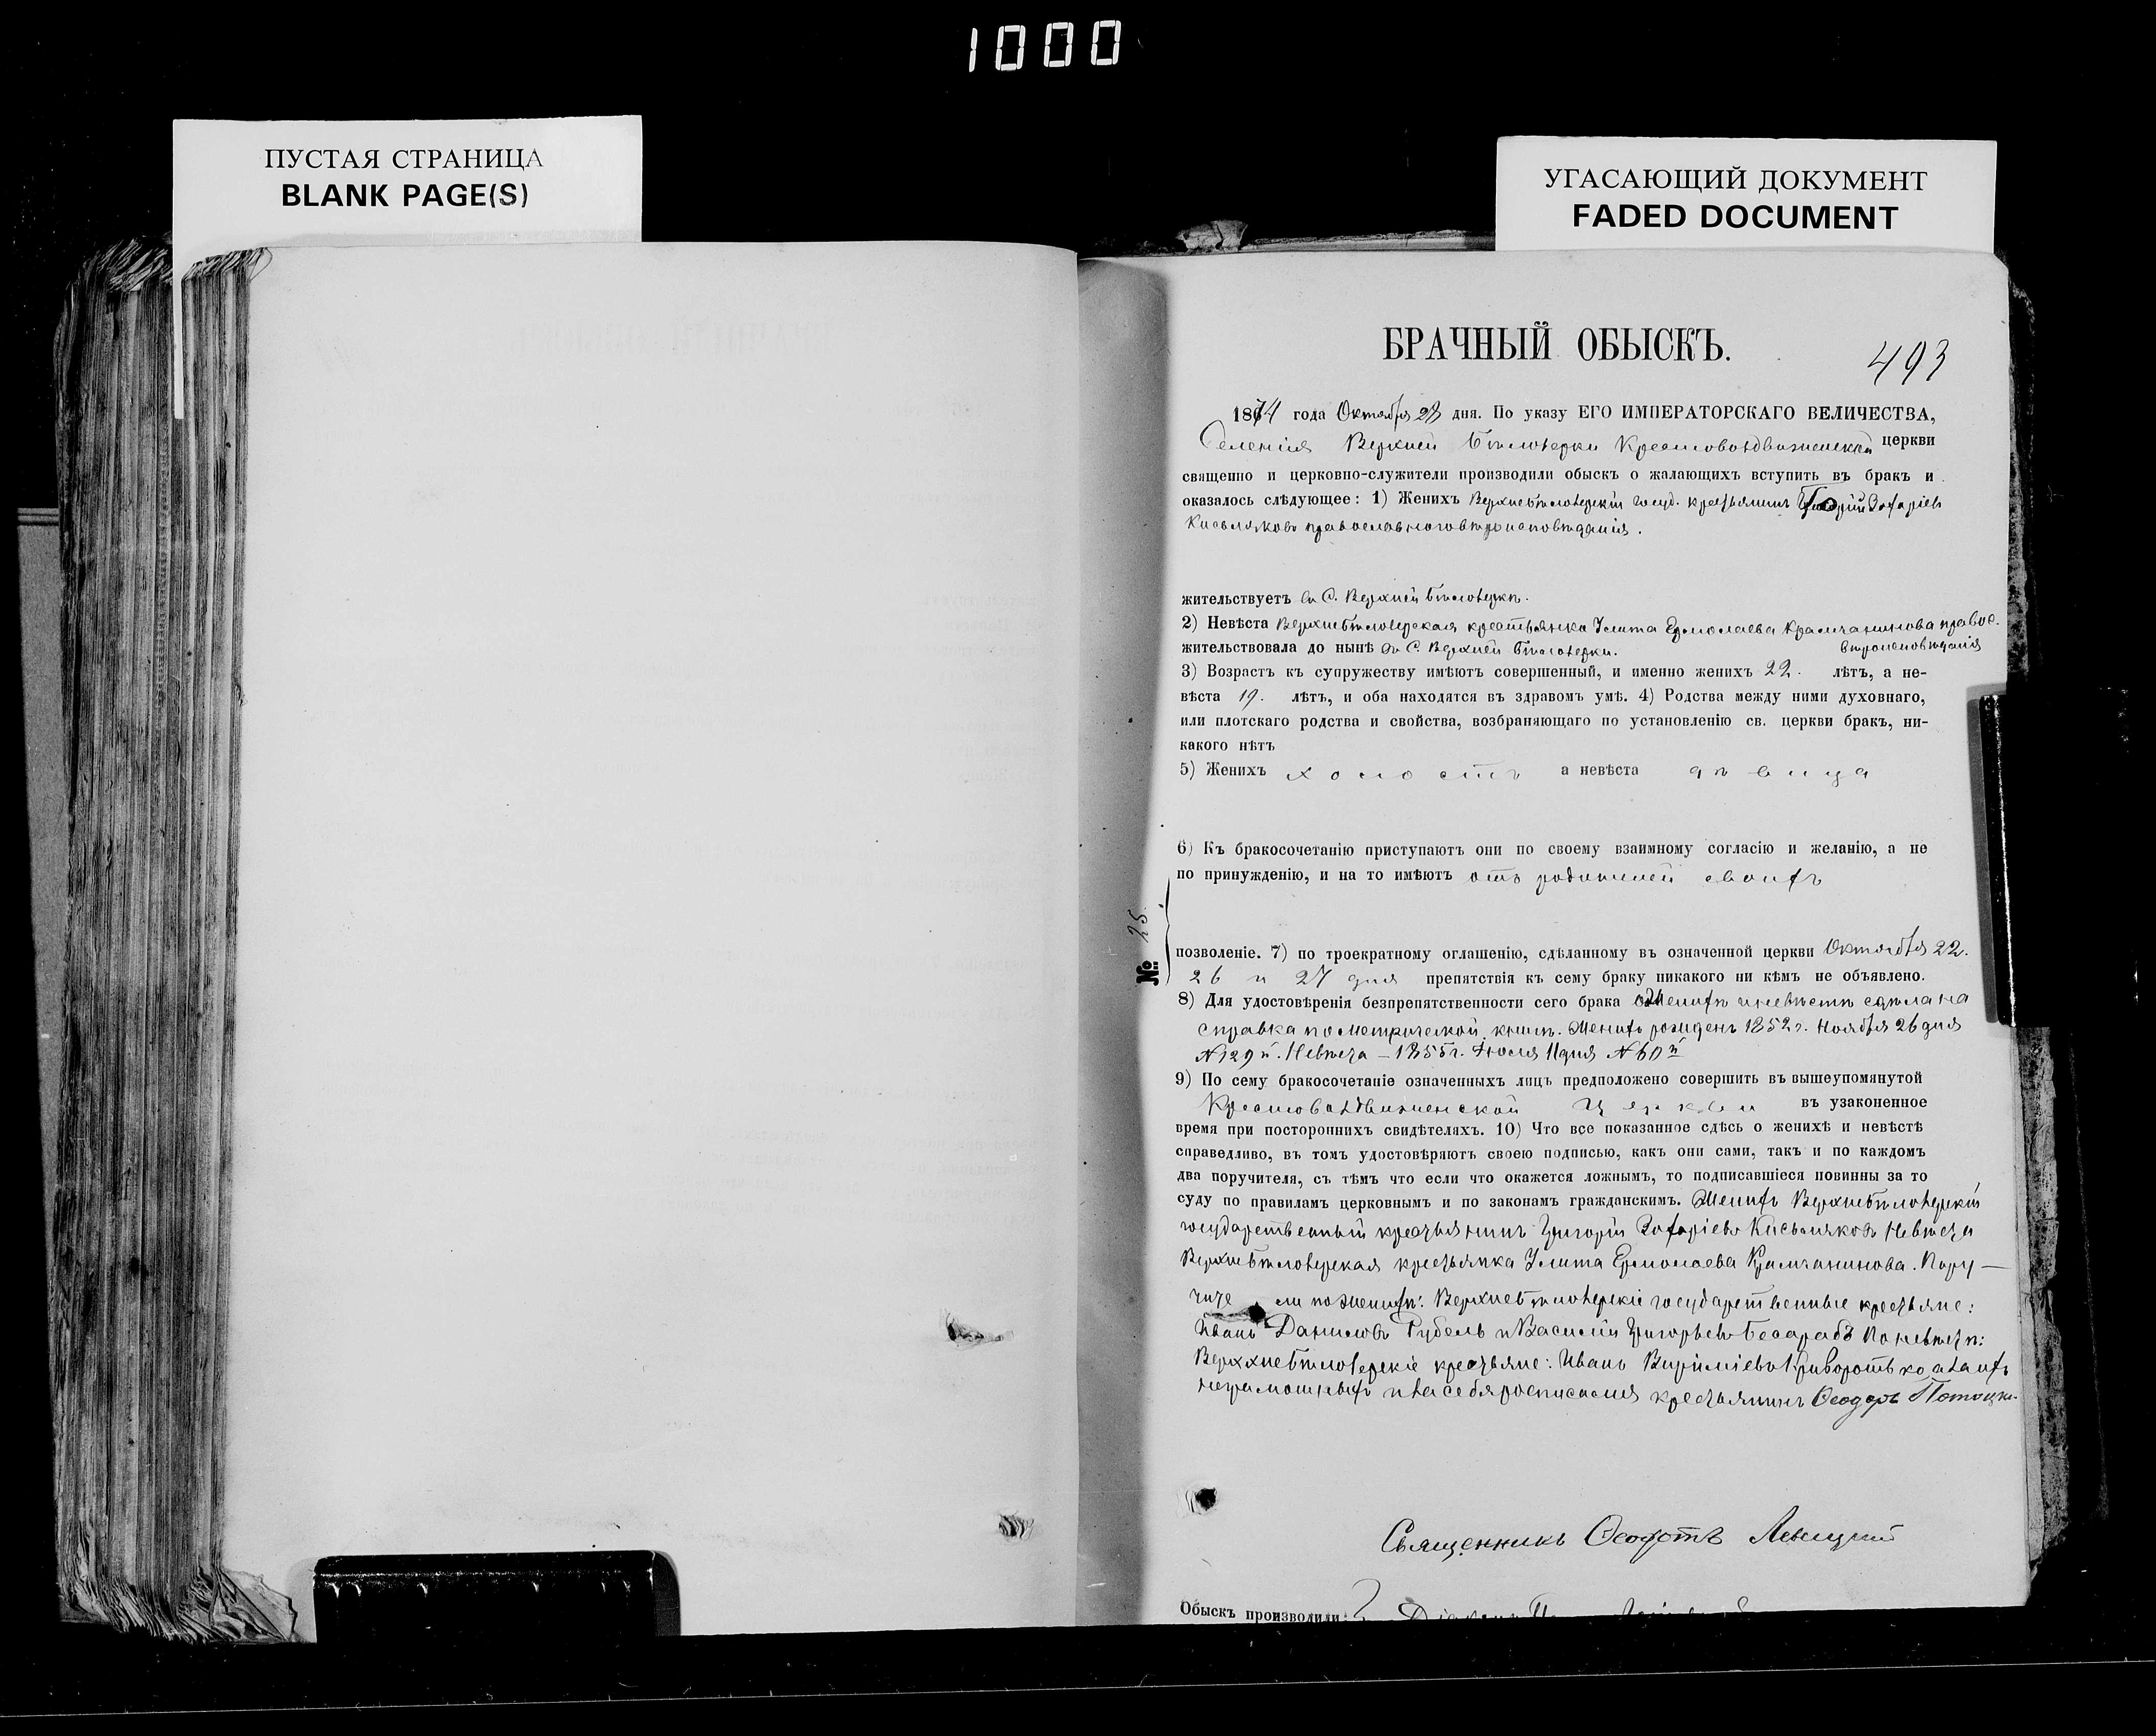 1000
ПУСТАЯ СТРАНИЦА
BLANK PAGE(S)
УГАСАЮЩИЙ ДОКУМЕНТ
FADED DOCUMENT
БРАЧНЫЙ ОБЫСКЪ.
493
1874 года Октября 28 дня. По указу ЕГО ИМПЕРАТОРСКАГО ВЕЛИЧЕСТВА,
Селенія Верхней Бѣлозерки Крестовоздвиженской церкви
священно и церковно-служители производили обыскъ о жалающихъ вступить въ бракъ и
оказалось слѣдующее: 1) Женихъ Верхнебѣлозерскій госуд. крестьянинъ Григорій Захаріевъ
Кисьляковъ православноговѣроисповѣданія.
жительствуетъ въ С. Верхней Бѣлозеркѣ.
2) Невѣста Верхнебѣлозерская крестьянка Улита Ермолаева Крамчанинова правос.
жительствовала до нынѣ въ С. Верхней Бѣлозерки. вѣроисповѣданія
3) Возрастъ къ супружеству имѣютъ совершенный, и именно женихъ 22. лѣтъ, а не-
вѣста 19. лѣтъ, и оба находятся въ здравомъ умѣ. 4) Родства между ними духовнаго,
или плотскаго родства и свойства, возбраняющаго по установленію св. церкви бракъ, ни-
какого нѣтъ
5) Женихъ холостъ а невѣста дѣвица
6) Къ бракосочетанію приступаютъ они по своему взаимному согласію и желанію, а не
по принужденію, и на то имѣютъ отъ родителей своихъ
№ 25.
позволеніе. 7) по троекратному оглашенію, сдѣланному въ означенной церкви Октября 22.
26 и 27 дня препятствія къ сему браку никакого ни кѣмъ не объявлено.
8) Для удостовѣренія безпрепятственности сего брака о женихѣ и невѣстѣ сдѣлана
справка по Метрической книгѣ. Женихъ рожденъ 1852 г. Ноября 26 дня
№ 129й. Невѣста – 1855 г. Іюля 11 дня № 60й
9) По сему бракосочетаніе означенныхъ лицъ предположено совершить въ вышеупомянутой
Крестовоздвиженской церкви въ узаконенное
время при постороннихъ свидѣтеляхъ. 10) Что все показанное сдѣсь о женихѣ и невѣстѣ
справедливо, въ томъ удостовѣряютъ своею подписью, какъ они сами, такъ и по каждомъ
два поручителя, съ тѣмъ что если что окажется ложнымъ, то подписавшіеся повинны за то
суду по правиламъ церковнымъ и по законамъ гражданскимъ. Женихъ Верхнебѣлозерскій
государственный крестьянинъ Григорій Захаріевъ Кисьляковъ Невѣста
Верхнебѣлозерская крестьянка Улита Ермолаева Крамчанинова. Пору—
чите ли по женихѣ: Верхнебѣлозерскіе государственные крестьяне:
Иванъ Даниловъ Рубель и Василій Григорьевъ Бесарабъ По невѣстѣ:
Верхнебѣлозерскіе крестьяне: Иванъ Криворотько а за ихъ
неграмотныхъ и за себя росписался крестьянинъ Ѳеодоръ Потоцкій
Священникъ Левицкій
Обыскъ производили: